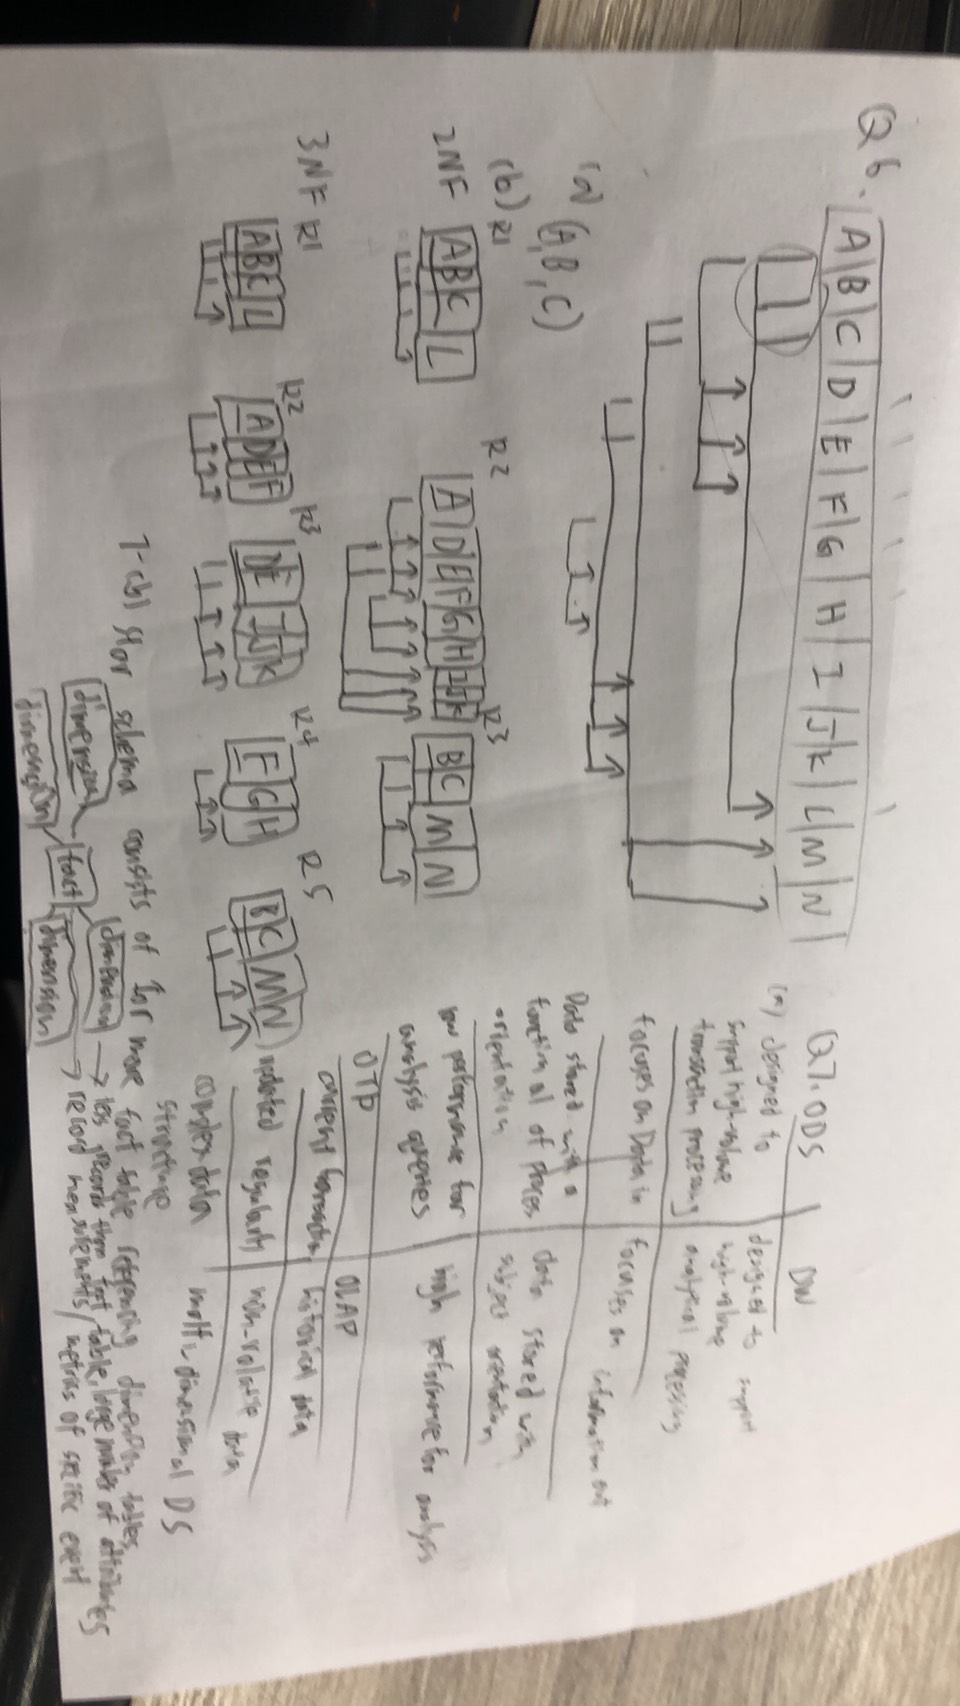 Q6.
A B C D E F G H I J K L M N
(a) (A,B,C)
(b)
2NF
R1
A B C L
R2
A D E F G H I J K
R3
B C M N
3NF
R1
A B C L
R2
A D E F
R3
D E I J K
R4
F G H
R5
B C M N
Q7. ODS
DW
(a) designed to
support high-volume
transaction processing
designed to support
high-volume
analytical processing
focuses on Data in
focuses on
information out
Data stored with a
functional of process
orientation
data stored with
subject orientation
low performance for
analysis queries
high performance for analysis
OTP
OLAP
current transaction
historical data
updated regularly
non-volatile
data
complex data
structure
multi dimensional DS
7-(b) Star schema consists of 1 or more fact table referencing dimension tables
dimension
dimension
fact
dimension
dimension
→ less records than fact table, large number of attributes
→ record measurements / metrics of specific event